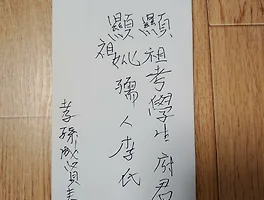 顯祖考學生府君
顯祖妣孺人李氏
孝孫成